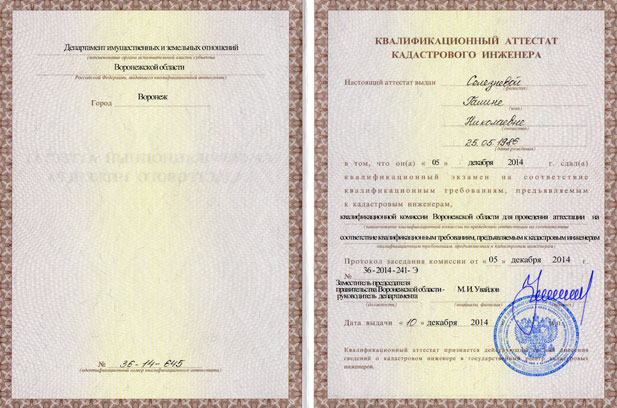 Департамент имущественных и земельных отношений
(наименование органа исполнительной власти субъекта
Воронежской области
Российской Федерации, выдавшего квалификационный аттестат)
Город Воронеж
№ 36-14-645
(идентификационный номер квалификационного аттестата)
КВАЛИФИКАЦИОННЫЙ АТТЕСТАТ
КАДАСТРОВОГО ИНЖЕНЕРА
Настоящий аттестат выдан Селезневой
(фамилия)
Галине
(имя)
Николаевне
(отчество)
25.05.1986
(дата рождения)
в том, что он(а) « 05 » декабря 2014 г. сдал(а)
квалификационный экзамен на соответствие
квалификационным требованиям, предъявляемым
к кадастровым инженерам,
квалификационной комиссии Воронежской области для проведения аттестации на
(наименование квалификационной комиссии по проведению аттестации на соответствие
соответствие квалификационным требованиям, предъявляемым к кадастровым инженерам
квалификационным требованиям, предъявляемым к кадастровым инженерам)
Протокол заседания комиссии от « 05 » декабря 2014 г.
№ 36-2014-241- Э
Заместитель председателя
правительства Воронежской области -
руководитель департамента М. И. Увайдов
(должность) (инициалы, фамилия)
Дата выдачи « 10 » декабря 2014
Квалификационный аттестат признается действующим со дня внесения
сведений о кадастровом инженере в государственный реестр кадастровых
инженеров.